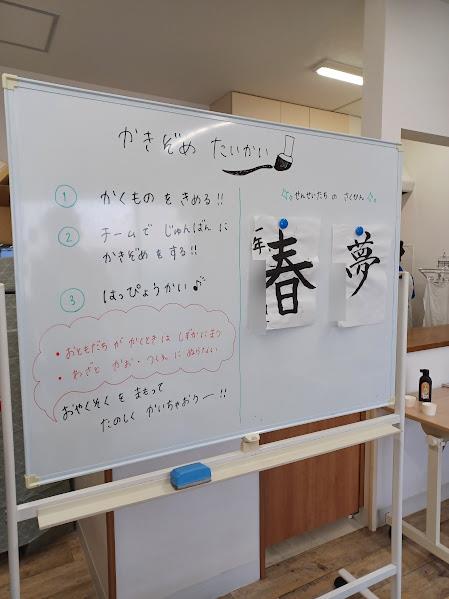 かきぞめ たいかい
① かくもの を きめる!!
② チームで じゅんばん に
かきぞめ を する!!
③ はっぴょうかい♪
・おともだち が かくとき は しずかにまつ
・わざと かお・つくえ に ぬらない
おやくそく を まもって
たのしく かいちゃおうー!!
☆。せんせいたち の さくひん ☆。
年
春
夢